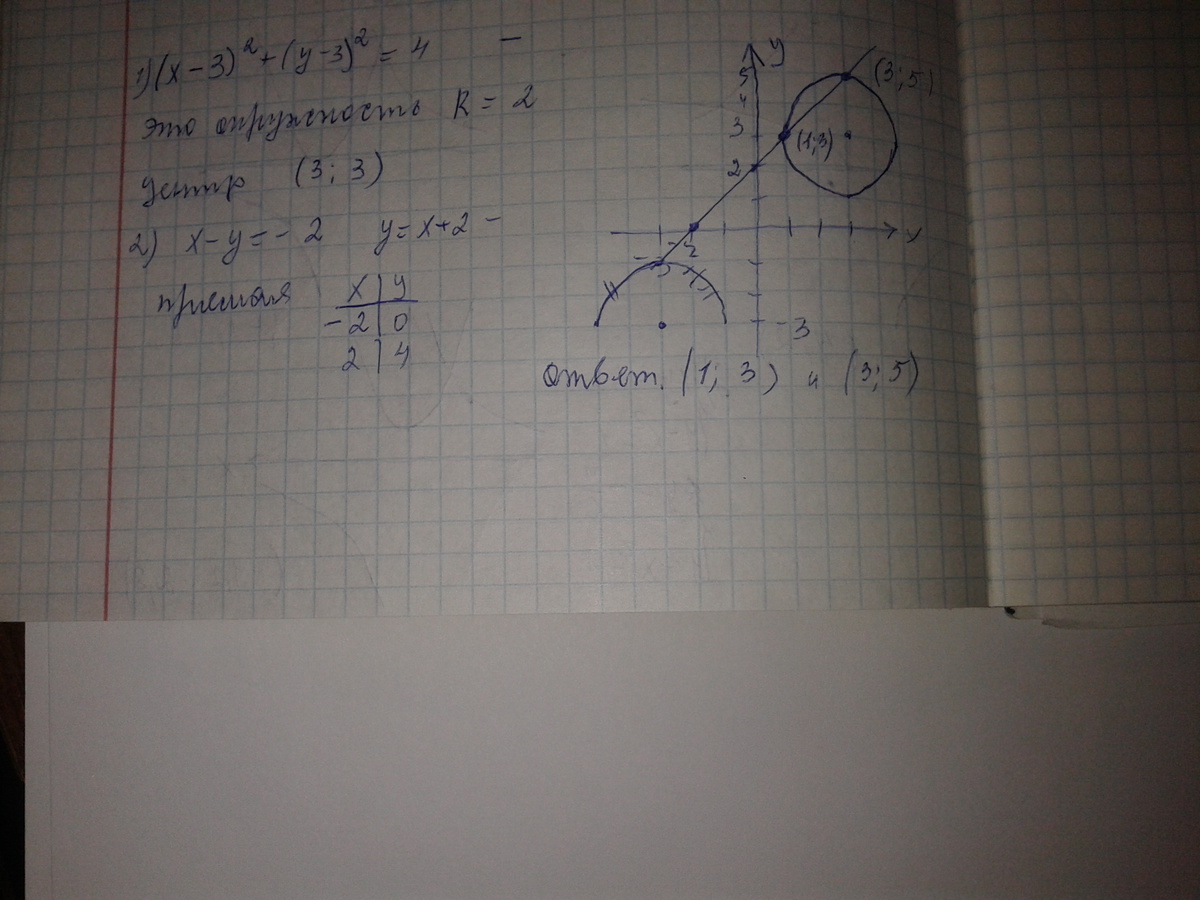 1) (x-3)² + (y-3)² = 4 —
это окружность R = 2
центр (3; 3)
2) x-y=-2 y=x+2 -
прямая
x | y
-2 | 0
2 | 4
y
5
4
3
2
(3; 5)
(1; 3)
x
-3
-2
-3
ответ. (1; 3) и (3; 5)